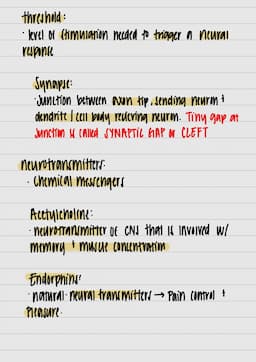 threshold:
· level of stimulation needed to trigger a neural
response
Synapse:
· Junction between axon tip, sending neuron &
dendrite / cell body receiving neuron. Tiny gap at
Junction is called SYNAPTIC GAP or CLEFT
neurotransmitters:
· Chemical messengers
Acetylcholine:
· neurotransmitter of CNS that is involved w/
memory & muscle concentration
Endorphins:
· natural neural transmitters → Pain control &
Pleasure.